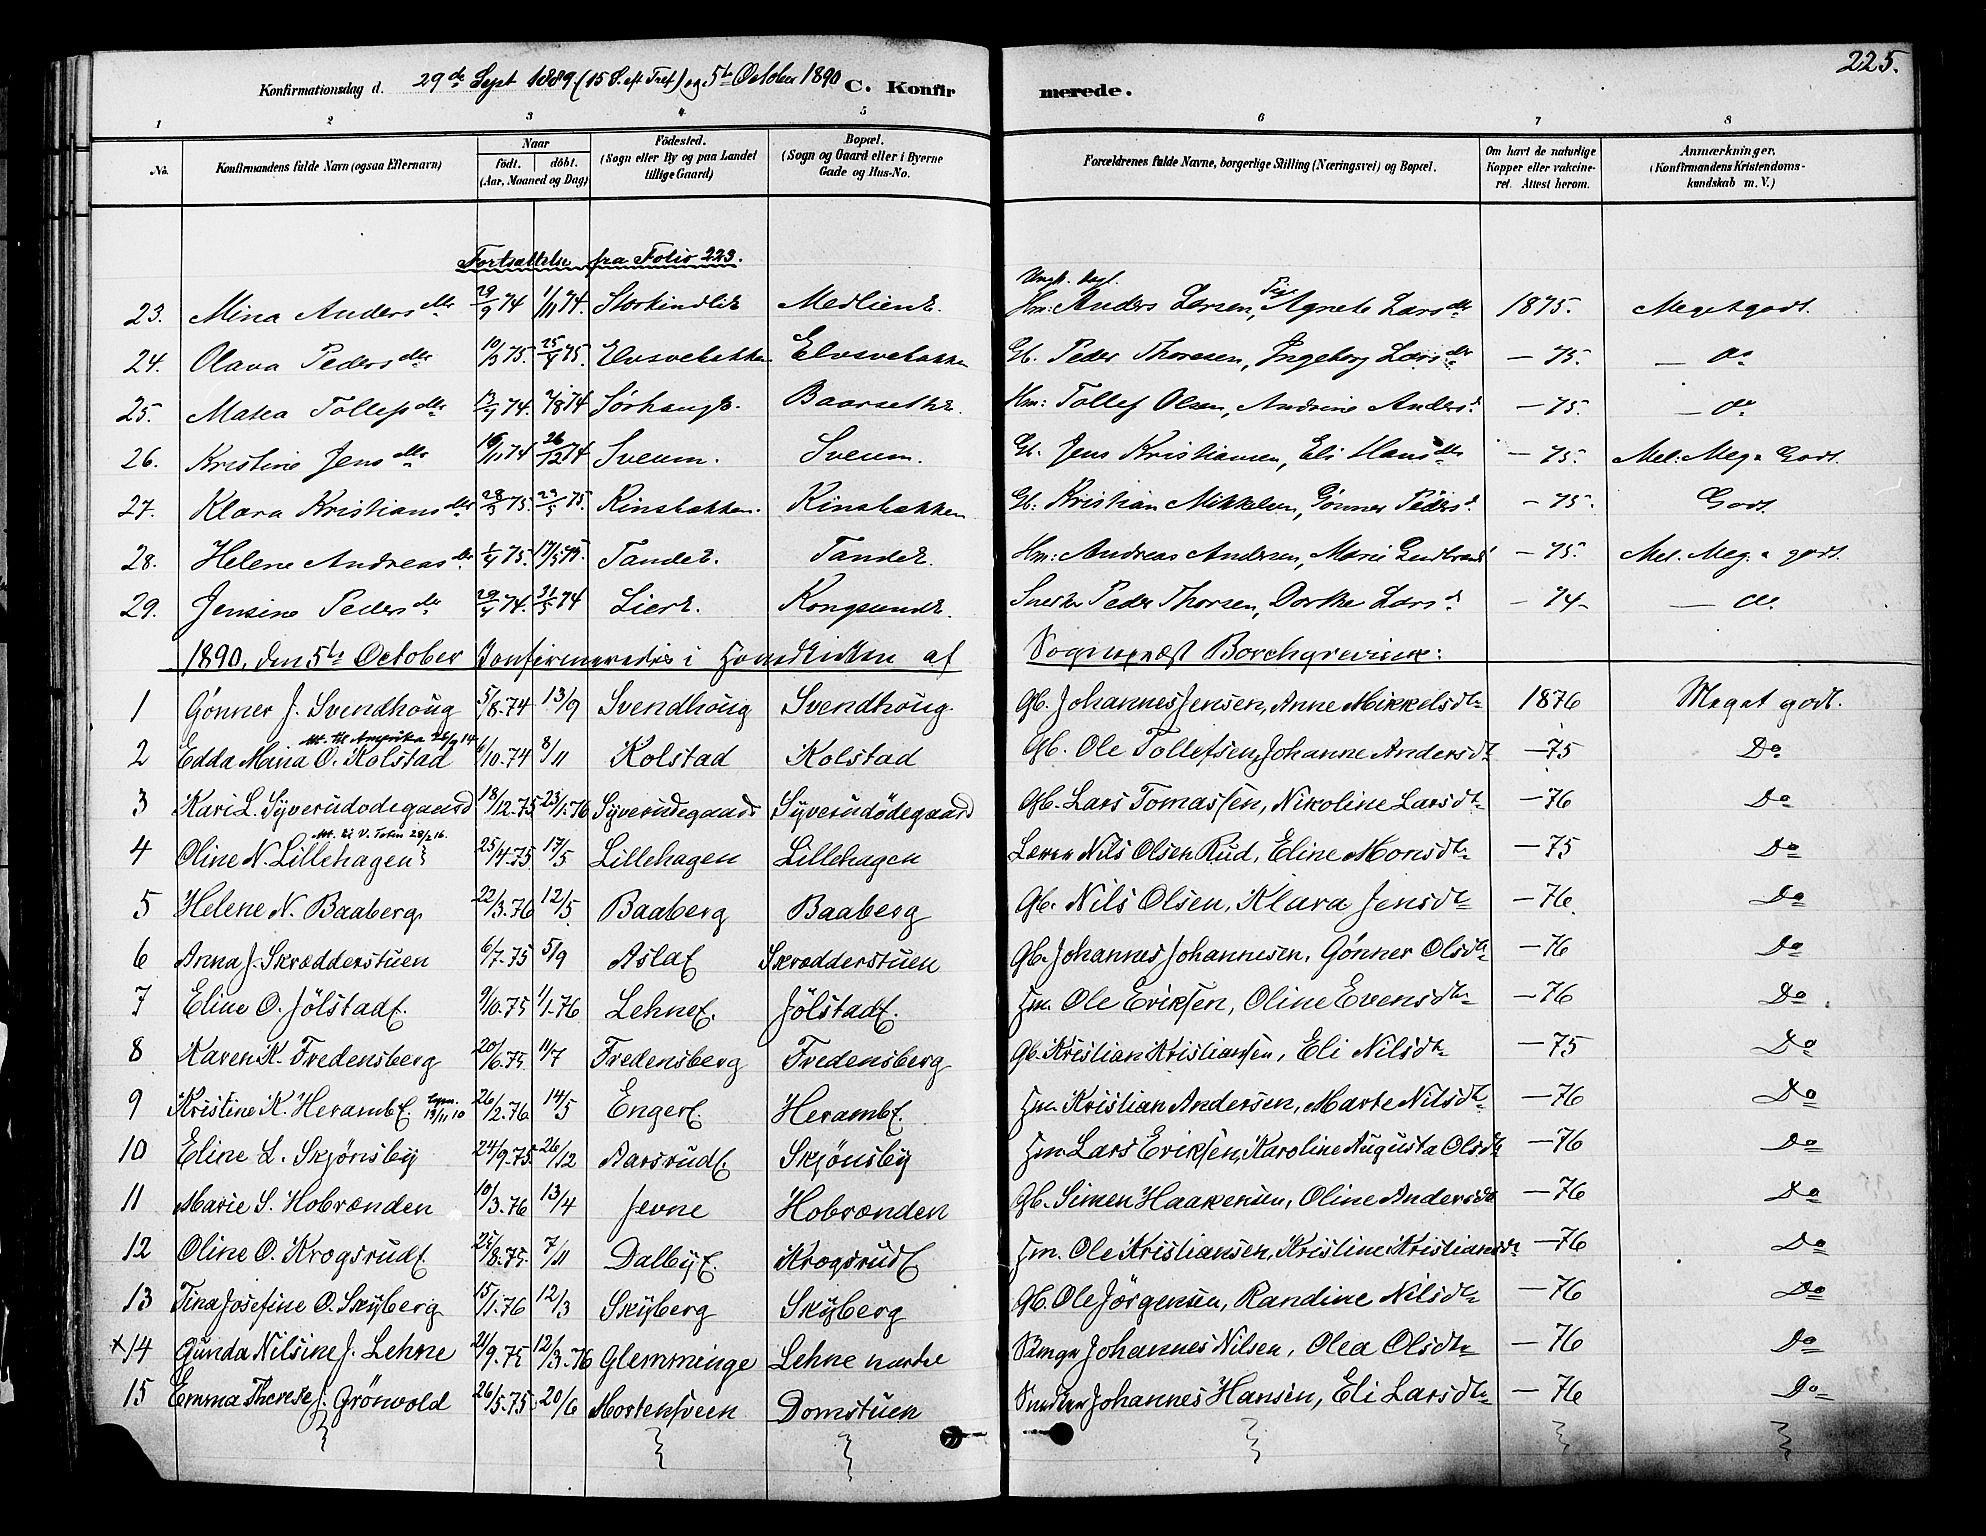 225.
Konfirmationsdag d. 29de Sept 1889 (15 S. eft Tref) og 5te October 1890 C. Konfirmerede.
1 2 3 4 5 6 7 8
No. Konfirmandens fulde Navn (ogsaa Efternavn) Naar födt. döbt. (Aar, Maaned og Dag) Födested. (Sogn eller By og paa Landet tillige Gaard) Bopæl. (Sogn og Gaard eller i Byerne Gade og Hus-No. Forældrenes fulde Navne, borgerlige Stilling (Næringsvei) og Bopæl. Om havt de naturlige Kopper eller vakcineret. Attest herom. Anmærkninger. (Konfirmandens Kristendomskundskab m. V.)
Fortsættelse fra Folio 223.
23. Mina Andersdtr 29/9 74 1/11 74. Storkindlie Medliene. Ungk. Hm: Anders Larsen, Pige Agnete Larsdtr 1875. Meget godt.
24. Olava Pedersdtr 10/3 75. 25/4 75. Elvsvebakken Elvsvebakken Gb. Peder Thoresen, Ingeborg Larsdtr — 75. — do
25. Matea Tollefsdtr 13/7 74. 2/8 74 Sörhauge. Baarsethe. Hm: Tollef Olsen, Andrine Andersd. — 75. — do
26. Kristine Jensdtr 16/11 74 26/12 74 Sveum. Sveum. Gb. Jens Kristiansen, Eli Hansdtr — 75. Mel. Meg. & Godt.
27. Klara Kristiansdtr 28/3 75. 23/5 75. Kinsbakken. Kinsbakken Gb: Kristian Mikkelsen, Gönner Pedersd. — 75. Godt.
28. Helene Andreasdtr 1/4 75. 17/5 75. Tandee. Tandee. Hm: Andreas Andersen, Marie Gudbrandsd — 75. Mel. Meg. & godt.
29. Jensine Pedersdtr 29/4 74. 21/5 74 Liere. Kongsunde. Snekker Peder Thorsen, Dorthe Larsd — 74 — do.
1890, den 5te October Konfirmeredes i Hovedkirken af Sogneprest Borchgrevinck:
1 Gönner J. Svendhoug 5/8. 74 13/9 Svendhoug Svendhoug. Gb. Johannes Jensen, Anne Mikkelsdtr 1876 Meget godt.
Att. til Amerika 26/9 14
2 Edda Mina O. Kolstad 6/10. 74 8/11 Kolstad Kolstad Gb. Ole Tollefsen, Johanne Andersdtr — 75 Do
3 Kari L. Syverudödegaard 18/12. 75 23/1. 76 Syverudegaard Syverudödegaard Gb. Lars Tomassen, Nikoline Larsdtr — 76 Do
Att. til V. Toten 28/2 16.
4 Oline N. Lillehagen 25/4. 75 17/5 Lillehagen Lillehagen Lærer Nils Olsen Rud, Eline Monsdtr — 75 Do
5 Helene N. Baaberg 22/3. 76 12/5 Baaberg Baaberg Gb. Nils Olsen, Klara Jensdtr — 76. Do
6 Anna J. Skrædderstuen 6/7. 75 5/9 Aslaf Skrædderstuen Gb. Johannes Johannesen, Gönner Olsdtr — 76 Do
7 Eline O. Jölstade. 9/10. 75 1/1. 76 Lehne. Jölstade. Hm. Ole Eriksen, Oline Evensdtr — 76 Do
8 Karen K. Fredensberg 20/6. 75 11/7 Fredensberg Fredensberg Gb. Kristian Kristiansen, Eli Nilsdtr — 75 Do
9 Kristine K. Herambe. 13/11 10 26/2. 76 14/5 Engere. Herambe. Hm. Kristian Andersen, Marte Nilsdtr — 76 Do
10 Eline L. Skjönsby 24/9. 75 26/12 Aarsrude. Skjönsby Hm. Lars Eriksen, Karoline Augusta Olsdtr — 76 Do
11 Marie S. Hobrænden 10/3. 76 13/4 Jevne Hobrænden Gb. Simen Haakensen, Oline Andersdtr — 76 Do
12 Oline O. Krogsrude. 25/8. 75. 7/11 Dalbye. Krogsrude Hm. Ole Kristiansen, Kristine Kristiansdtr — 76 Do
13 Tina Josefine O. Skyberg 15/1. 76 12/3 Skyberg Skyberg Gb. Ole Jörgensen, Randine Nilsdtr — 76 Do
x14 Gunda Nilsine J. Lehne 21/9. 75 12/3. 76 Glemminge Lehne nordre Johannes Nilsen, Olea Olsdtr — 76 Do
15 Emma Therese J. Grönvold 26/5. 75. 20/6 Mortensveen Domstuen Snekker Johannes Hansen, Eli Larsdtr — 76 Do